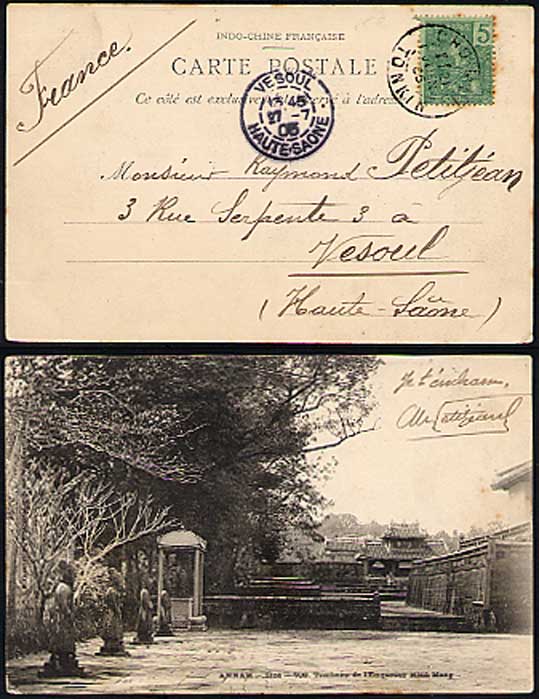 France.
INDO-CHINE FRANÇAISE
CARTE POSTALE
Ce côté est exclusivement réservé à l'adresse
5
TONKIN
VESOUL
27 -7
05
HAUTE-SAONE
Monsieur Raymond Petitjean
3 Rue Serpente 3 à
Vesoul
(Haute-Saône)
Je t'embrasse.
Petitjean
ANNAM - Tombeau de l'Empereur Minh Mang